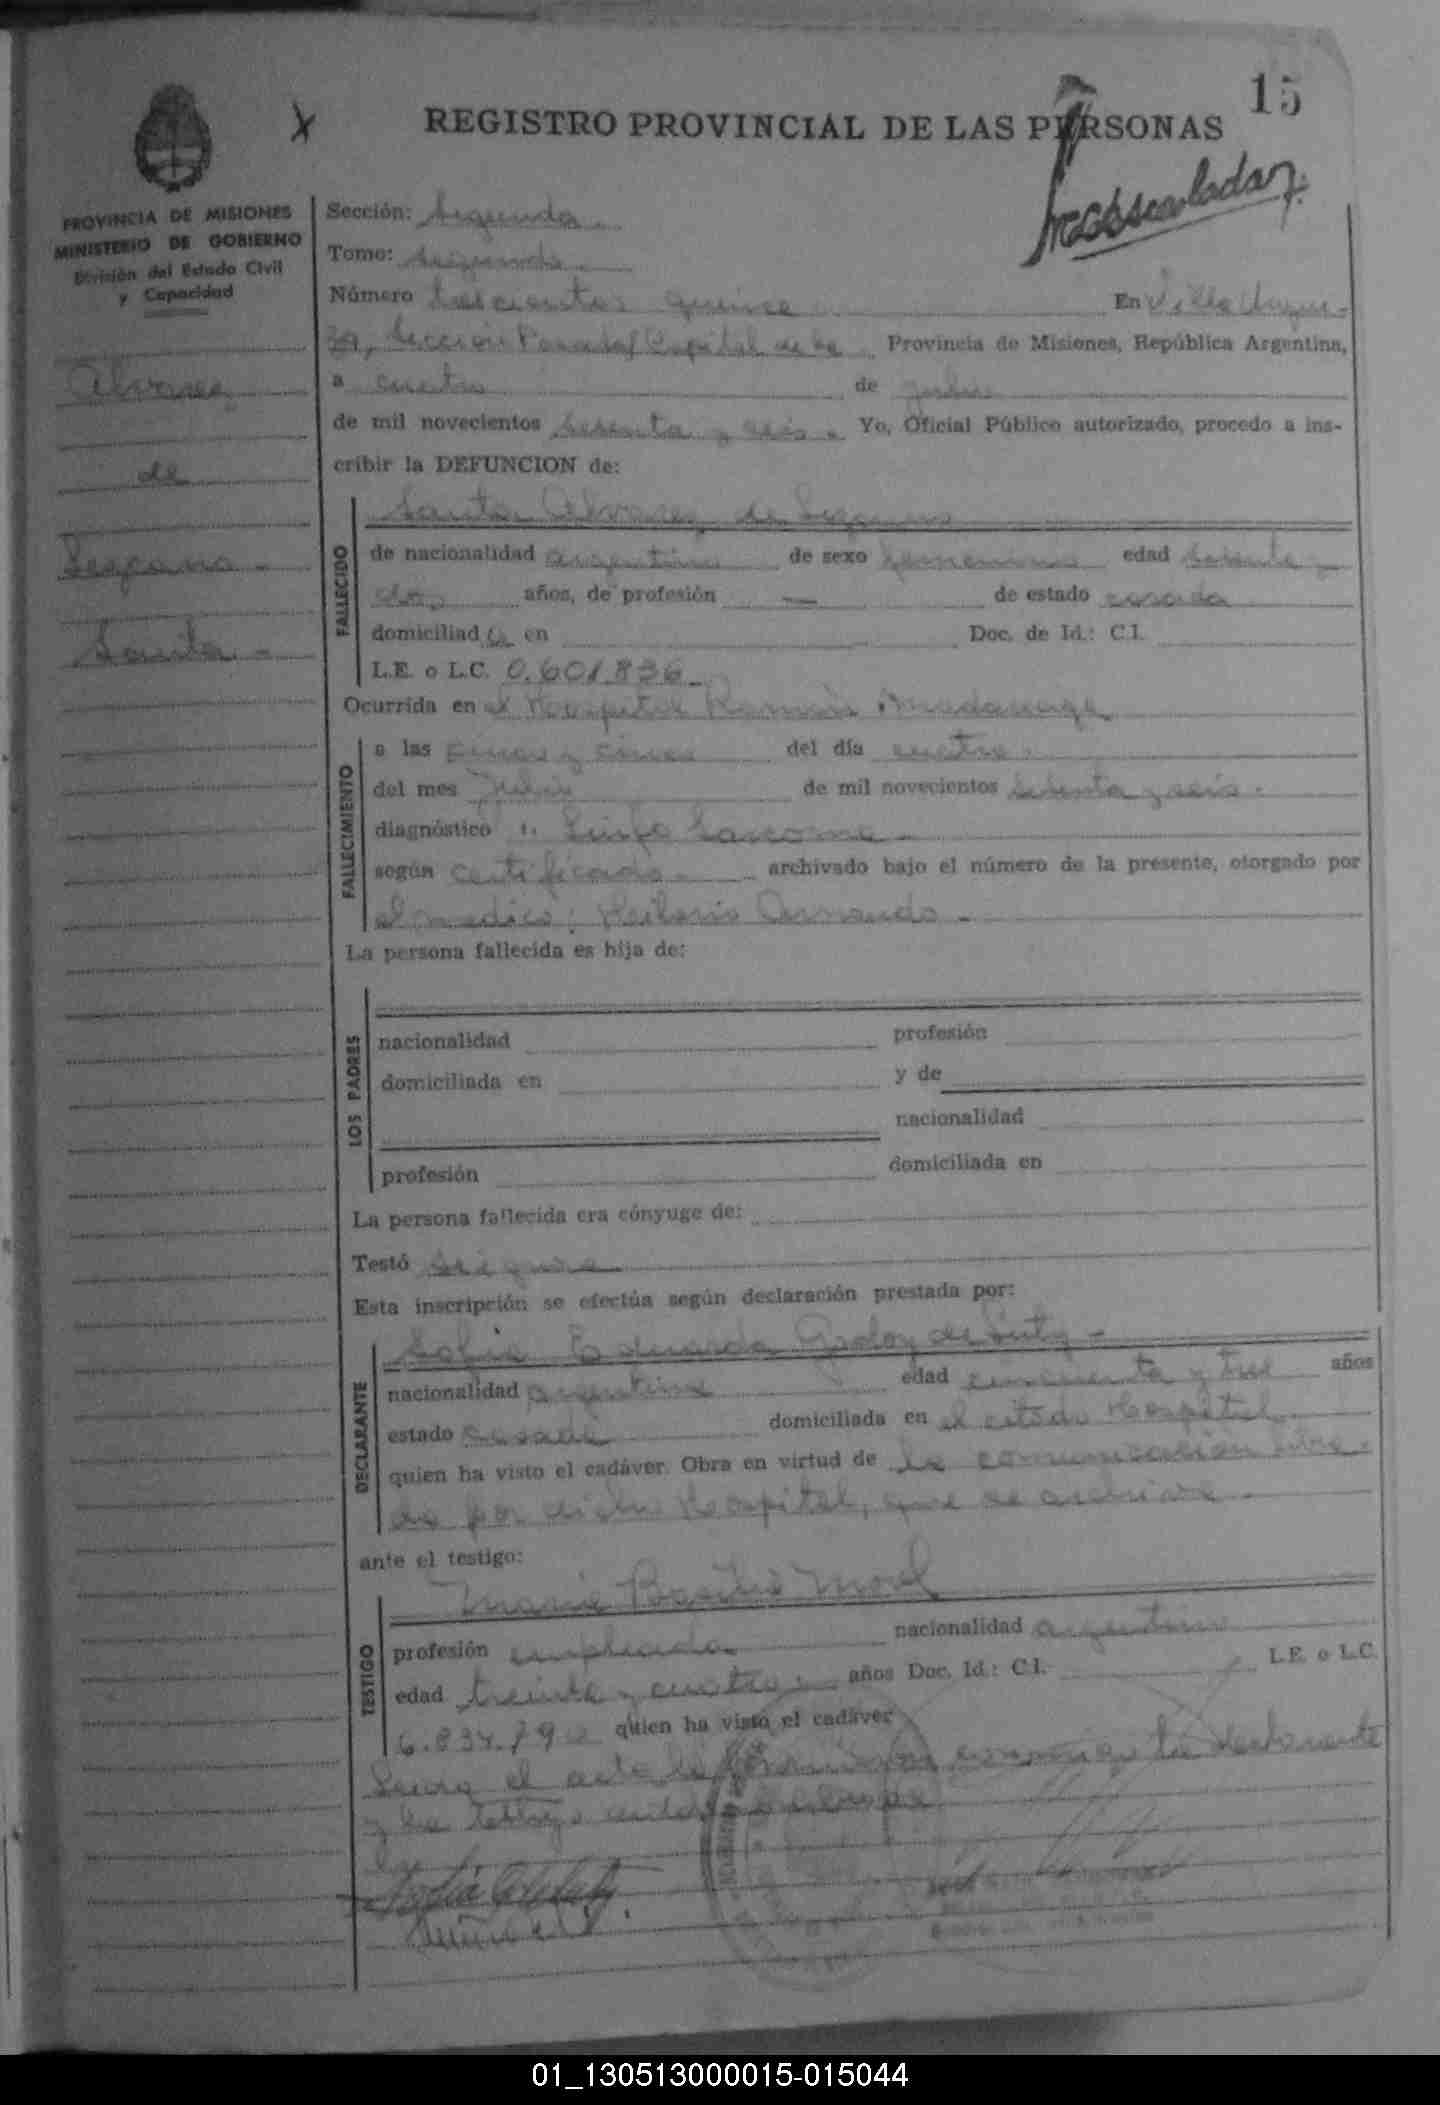 15
REGISTRO PROVINCIAL DE LAS PERSONAS
PROVINCIA DE MISIONES
MINISTERIO DE GOBIERNO
División del Estado Civil
y Capacidad
Alvarez
de
Lezcano.-
Santa.-
Sección: Segunda.
Tomo: Segundo.
Número trescientos quince En Villa Urqui-
za, Sección Posadas Capital de la Provincia de Misiones, República Argentina,
a cuatro de julio
de mil novecientos setenta y seis. Yo, Oficial Público autorizado, procedo a ins-
cribir la DEFUNCION de:
Santa Alvarez de Lezcano
FALLECIDO
de nacionalidad argentina de sexo femenino edad
dos años, de profesión — de estado casada
domiciliada en Doc. de Id.: C.I.
L.E. o L.C. 0.601.836.-
Ocurrida en el Hospital Ramón Madariaga
FALLECIMIENTO
a las cinco y cinco del día cuatro.
del mes Julio de mil novecientos setenta y seis.
diagnóstico: Linfo Sarcoma.-
según certificado.- archivado bajo el número de la presente, otorgado por
el medico: Hilario Armando.-
La persona fallecida es hija de:
LOS PADRES
nacionalidad profesión
domiciliada en y de
nacionalidad
profesión domiciliada en
La persona fallecida era cónyuge de:
Testó
Esta inscripción se efectúa según declaración prestada por:
DECLARANTE
Sofia Eduarda Godoy de
nacionalidad argentina edad cincuenta y tres años
estado casada domiciliada en el citado Hospital
quien ha visto el cadáver. Obra en virtud de la comunicación libra-
da por dicho Hospital, que se archiva.-
ante el testigo:
TESTIGO
Maria Morel
profesión empleada nacionalidad argentina
edad treinta y cuatro. años Doc. Id.: C.I. L.E. o L.C.
6.834.790 quien ha visto el cadáver
el acta la conmigo la declarante
y la testigo
01_130513000015-015044